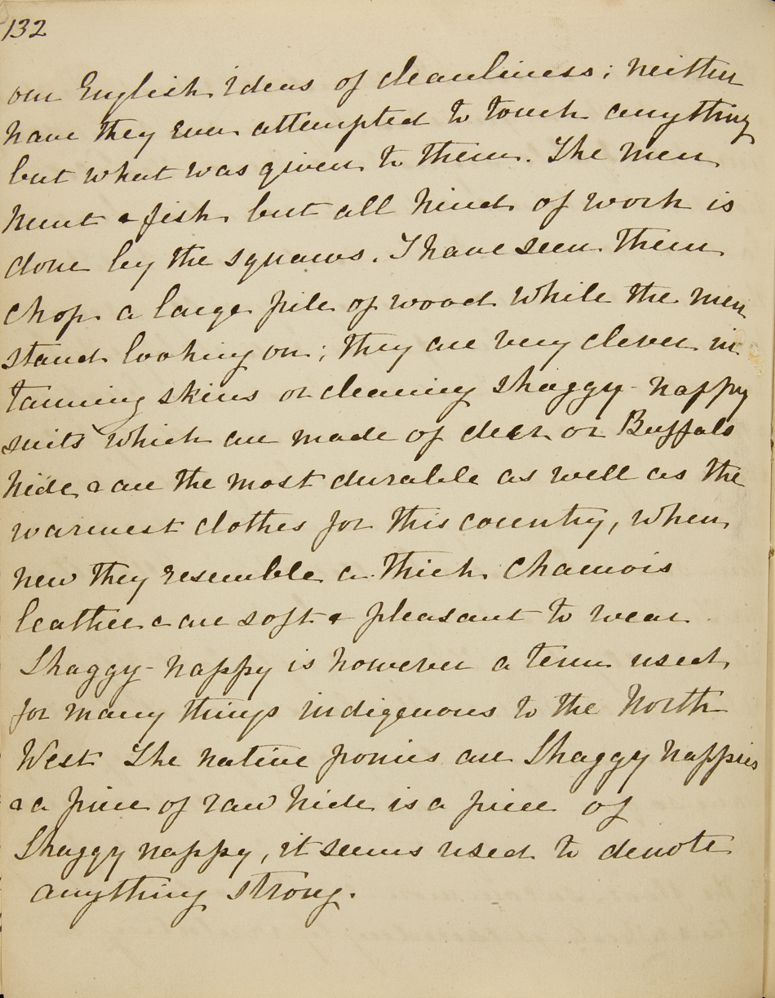 132
our English ideas of cleanliness; neither
have they ever attempted to touch anything
but what was given to them. The men
hunt & fish but all kind of work is
done by the squaws. I have seen them
chop a large pile of wood while the men
stand looking on; they are very clever in
tanning skins or cleaning shaggy-nappy
suits which are made of deer or Buffalo
hide & are the most durable as well as the
warmest clothes for this country, when
new they resemble a thick chamois
leather & are soft & pleasant to wear.
Shaggy-nappy is however a term used
for many things indigenous to the North
West The native ponies are Shaggy nappies
& a piece of raw hide is a piece of
Shaggy nappy, it seems used to denote
anything strong.